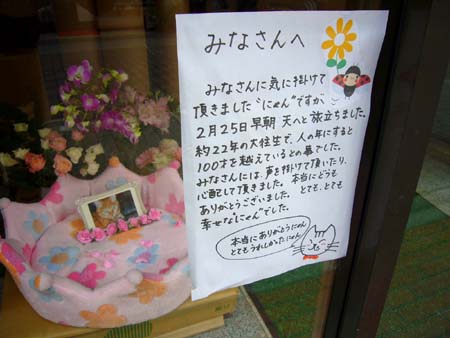 みなさんへ
みなさんに気に掛けて
頂きました"にゃん"ですが、
2月25日早朝 天へと旅立ちました。
約22年の大往生で、人の年にすると
100才を越えているとの事でした。
みなさんには、声を掛けて頂いたり、
心配して頂きました。本当にどうも
ありがとうございました。とても、とても
幸せな"にゃん"でした。
本当にありがとうにゃん
とてもうれしかったにゃん